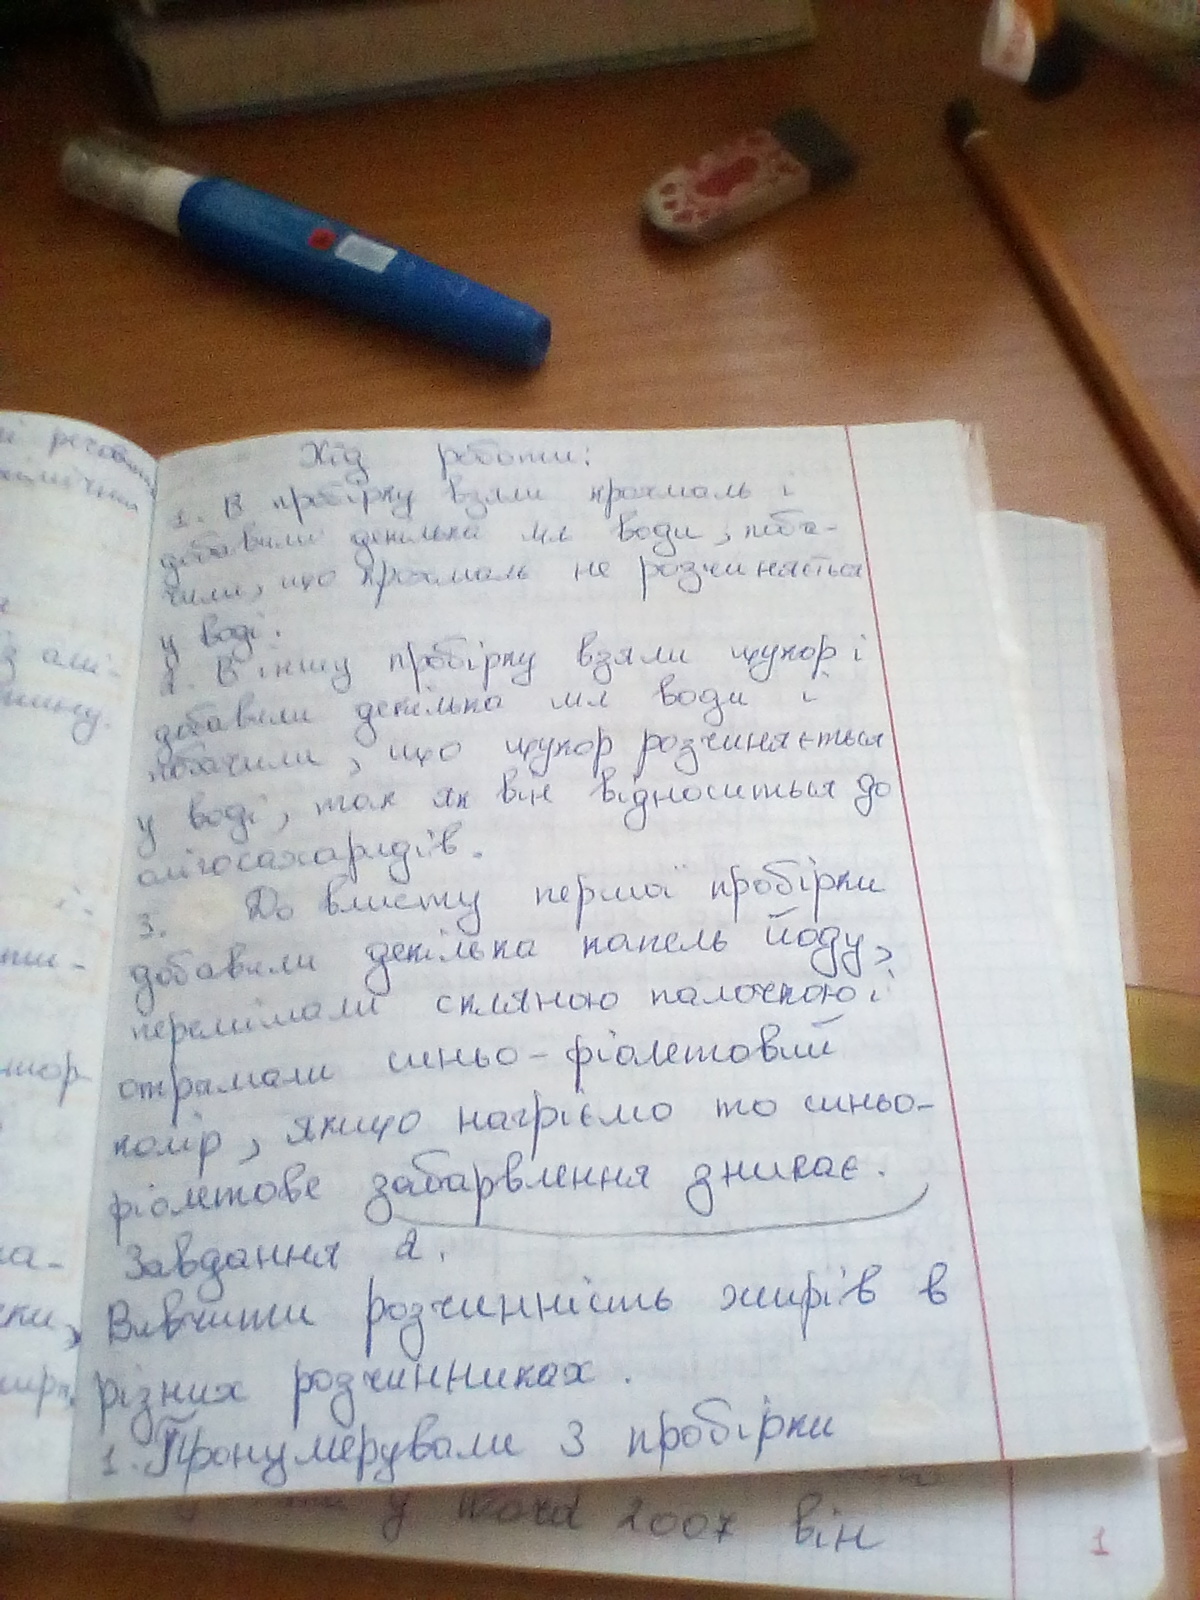 і речовин
хімічний
Хід роботи:
1. В пробірку взяли крохмаль і
добавили декілька мл води, поба-
чили, що крохмаль не розчиняється
у воді.
2. В іншу пробірку взяли цукор і
добавили декілька мл води і
побачили, що цукор розчиняється
у воді, так як він відноситься до
олігосахаридів.
3. До вмісту першої пробірки
добавили декілька капель йоду,
перемішали скляною палочкою і
отримали синьо-фіолетовий
колір, якщо нагріємо то синьо-
фіолетове забарвлення зникає.
Завдання 2.
Вивчити розчинність жирів в
різних розчинниках.
1. Пронумерували 3 пробірки
у Word 2007 він
1